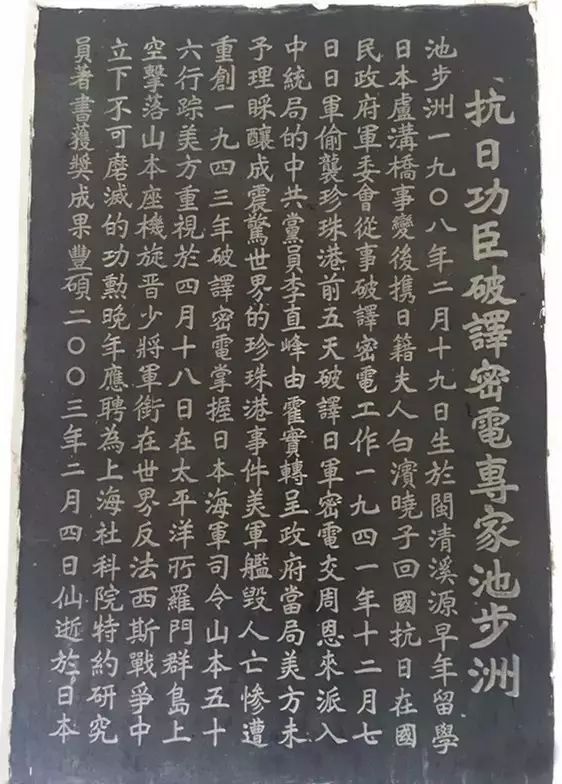 抗日功臣破譯密電專家池步洲
池步洲一九〇八年二月十九日生於閩清溪源早年留學
日本盧溝橋事變後携日籍夫人白濱曉子回國抗日在國
民政府軍委會從事破譯密電工作一九四一年十二月七
日日軍偷襲珍珠港前五天破譯日軍密電交周恩來派入
中統局的中共黨員李直峰由霍實轉呈政府當局美方未
予理睬釀成震驚世界的珍珠港事件美軍艦毀人亡慘遭
重創一九四三年破譯密電掌握日本海軍司令山本五十
六行踪美方重視於四月十八日在太平洋所羅門群島上
空擊落山本座機旋晋少將軍銜在世界反法西斯戰爭中
立下不可磨滅的功勲晚年應聘為上海社科院特約研究
員著書獲獎成果豐碩二〇〇三年二月四日仙逝於日本